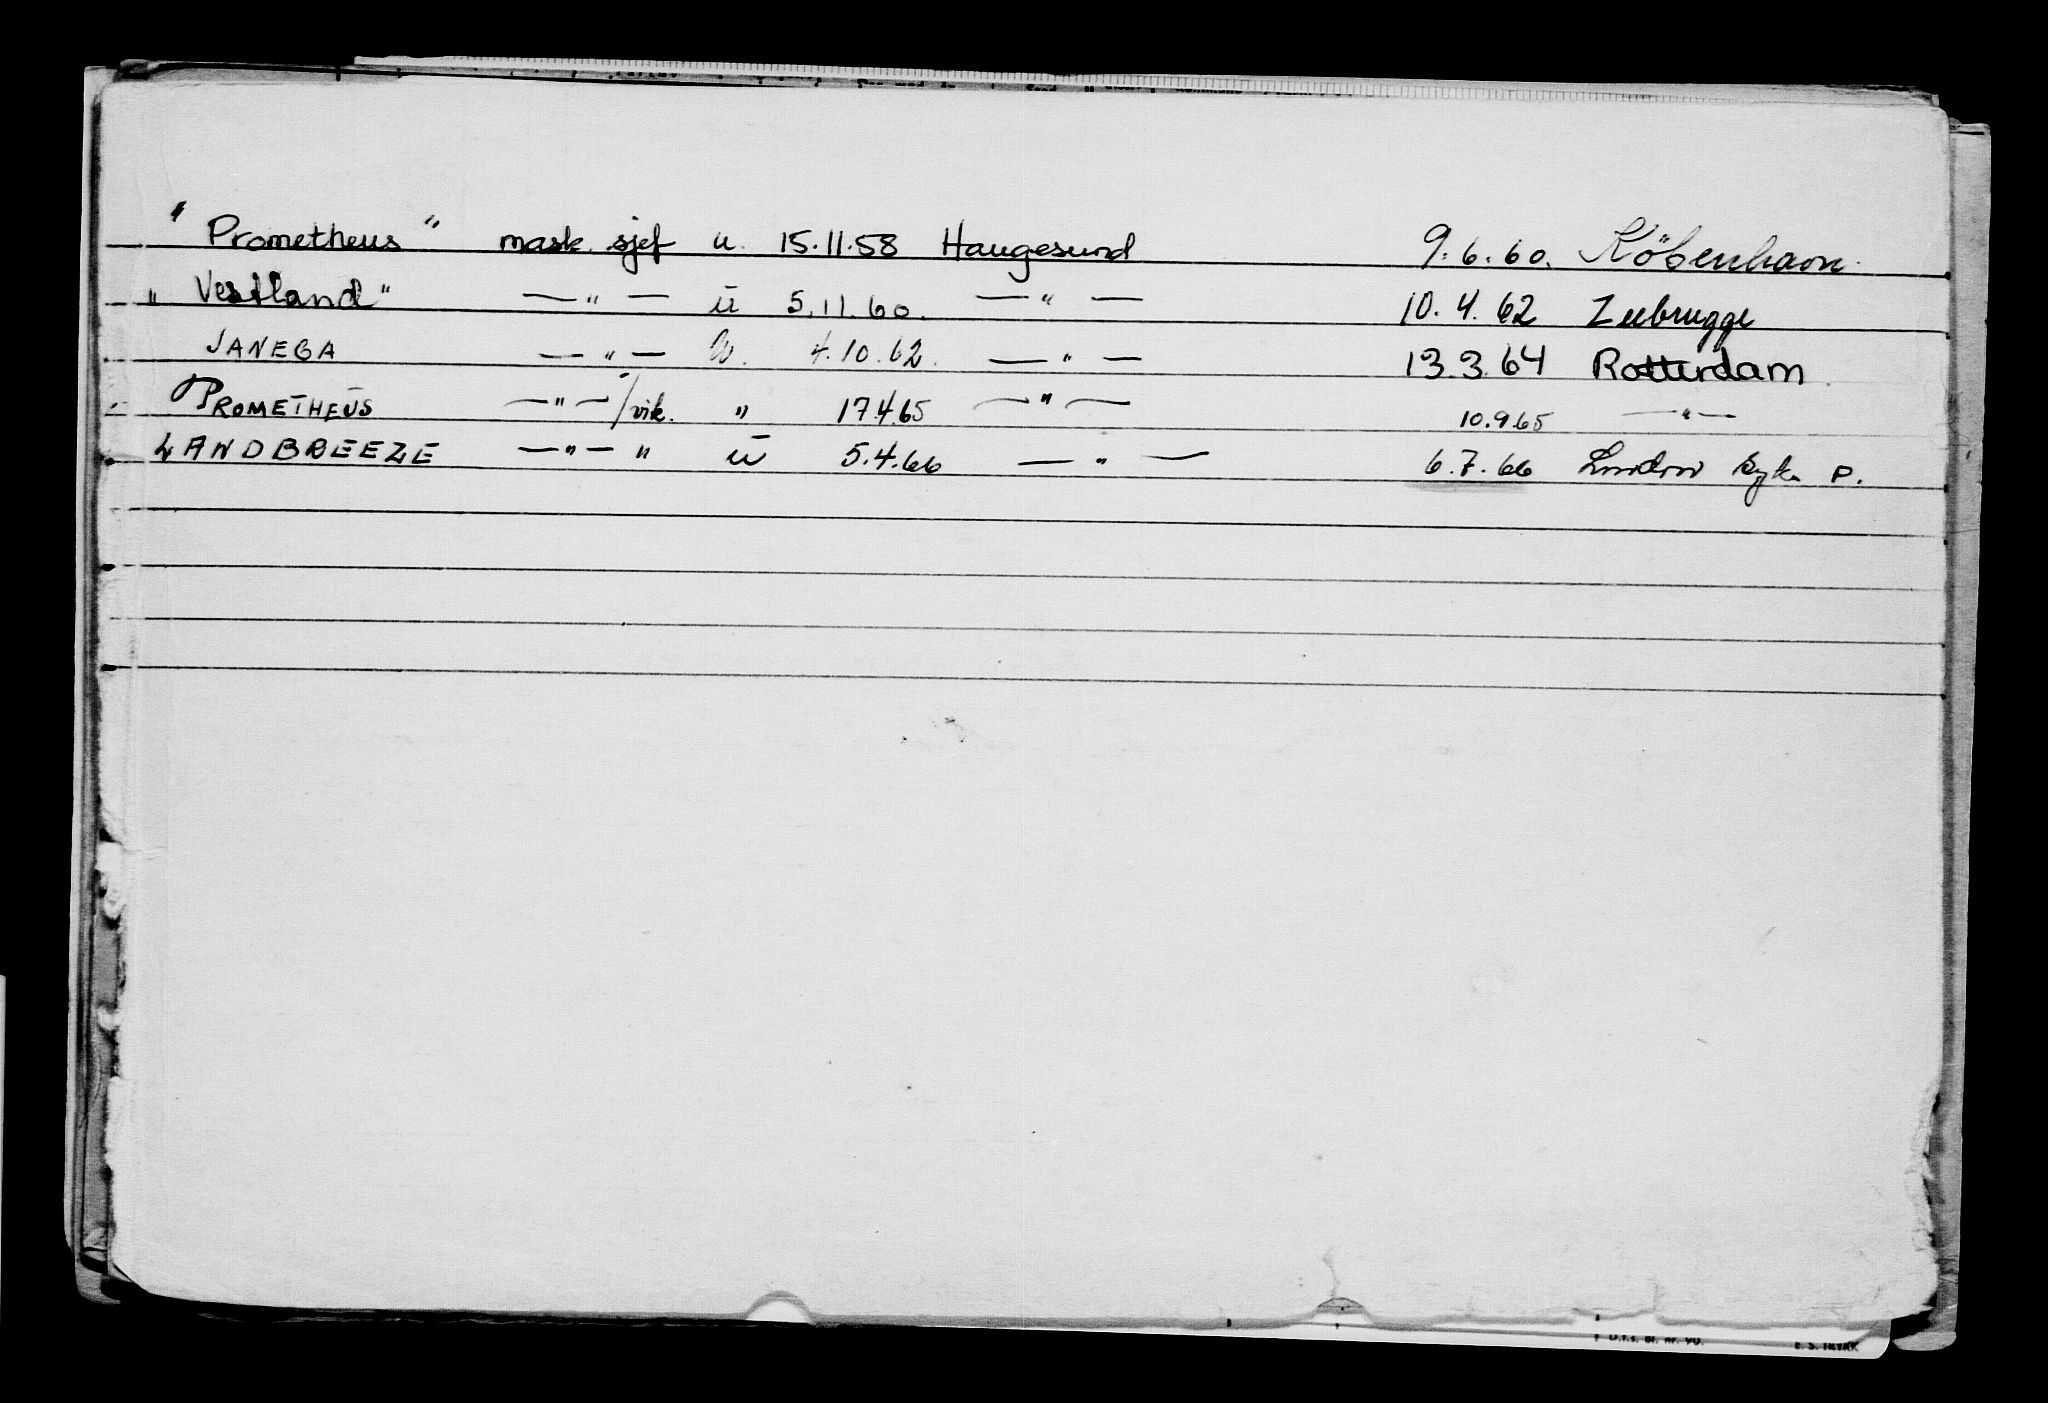 "Prometheus" mask. sjef u. 15.11.58 Haugesund 9.6.60. Köbenhavn.
"Vestland" —"— u 5.11.60. —"— 10.4.62 Zeebrugge
JANEGA —"— u. 4.10.62. —"— 13.3.64 Rotterdam
PROMETHEUS —"—/vik. " 17.4.65 —"— 10.9.65 —"—
LANDBREEZE —"— " u 5.4.66 —"— 6.7.66 London Syke P.